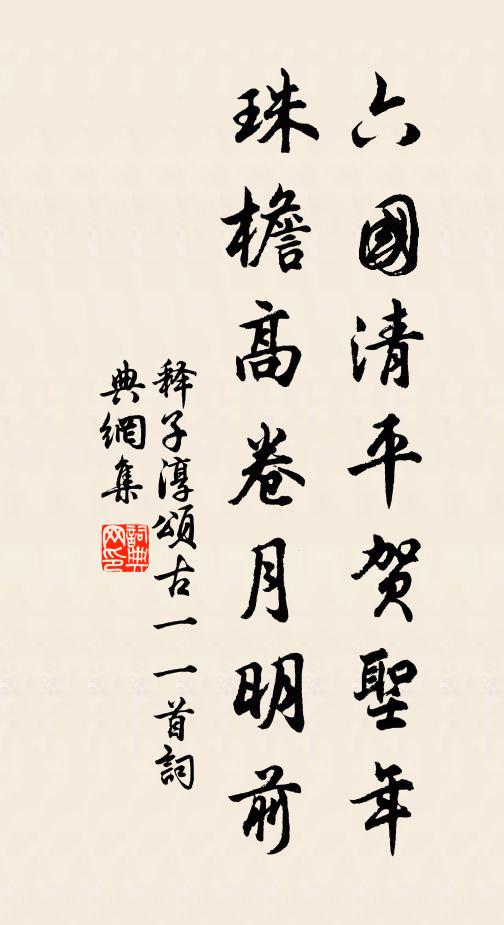 六國清平贺聖年
珠檐高卷月明前
释子淳頌古一一首詞
典網集
詞典網印